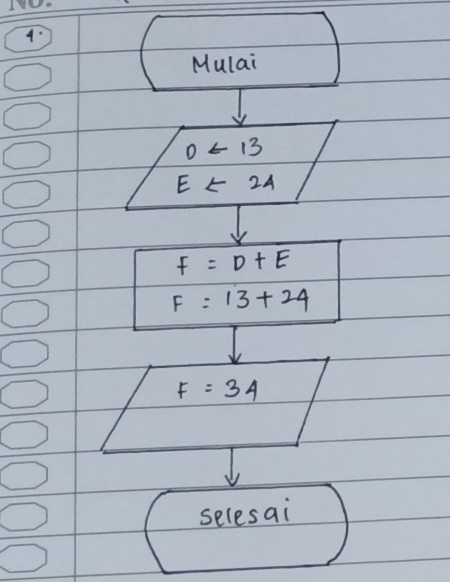 No.
Mulai
D ← 13
E ← 24
F = D + E
F = 13 + 24
F = 34
Selesai